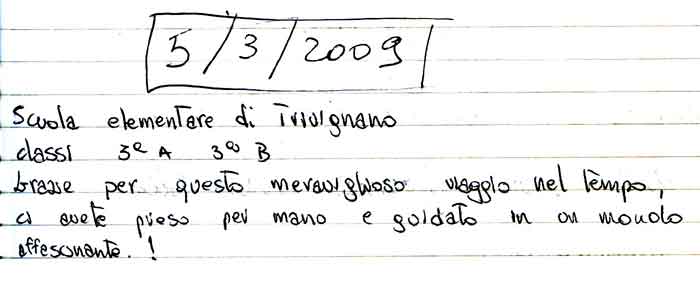 5/3/2009
Scuola elementare di Trivignano
classi 3ª A 3ª B
Grazie per questo meraviglioso viaggio nel tempo,
ci avete preso per mano e guidato in un mondo
affascinante.!